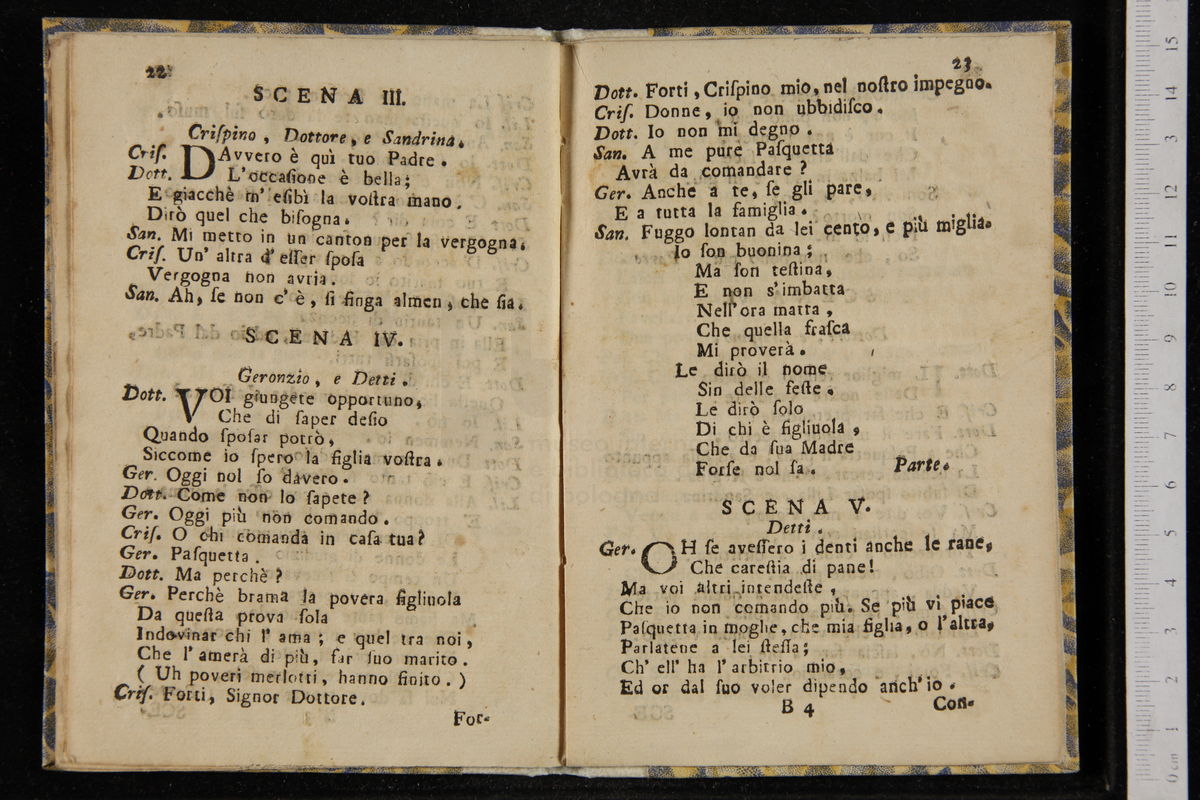 22
SCENA III.
Criſpino, Dottore, e Sandrina.
Criſ. DAvvero è quì tuo Padre.
Dott. L'occaſione è bella;
E giacchè m' eſibì la voſtra mano.
Dirò quel che biſogna.
San. Mi metto in un canton per la vergogna.
Criſ. Un' altra d' eſſer ſpoſa
Vergogna non avria.
San. Ah, ſe non c' è, ſi finga almen, che ſia.
SCENA IV.
Geronzio, e Detti.
Dott. VOI giungete opportuno,
Che di ſaper deſio
Quando ſpoſar potrò,
Siccome io ſpero la figlia voſtra.
Ger. Oggi nol ſo davero.
Dott. Come non lo ſapete?
Ger. Oggi più non comando.
Criſ. O chi comanda in caſa tua?
Ger. Paſquetta.
Dott. Ma perchè?
Ger. Perchè brama la povera figliuola
Da queſta prova ſola
Indovinar chi l' ama; e quel tra noi,
Che l' amerà di più, far ſuo marito.
(Uh poveri merlotti, hanno finito.)
Criſ. Forti, Signor Dottore.
For-
23
Dott. Forti, Criſpino mio, nel noſtro impegno.
Criſ. Donne, io non ubbidiſco.
Dott. Io non mi degno.
San. A me pure Paſquetta
Avrà da comandare?
Ger. Anche a te, ſe gli pare,
E a tutta la famiglia.
San. Fuggo lontan da lei cento, e più miglia.
Io ſon buonina;
Ma ſon teſtina,
E non s'imbatta
Nell'ora matta,
Che quella fraſca
Mi proverà.
Le dirò il nome
Sin delle feſte.
Le dirò ſolo
Di chi è figliuola,
Che da ſua Madre
Forſe nol ſa. Parte.
SCENA V.
Detti.
Ger. OH ſe aveſſero i denti anche le rane,
Che careſtia di pane!
Ma voi altri intendeſte,
Che io non comando più. Se più vi piace
Paſquetta in moglie, che mia figlia, o l'altra,
Parlatene a lei ſteſſa;
Ch' ell' ha l'arbitrio mio,
Ed or dal ſuo voler dipendo anch'io.
B 4
Con-
0 cm 1 2 3 4 5 6 7 8 9 10 11 12 13 14 15